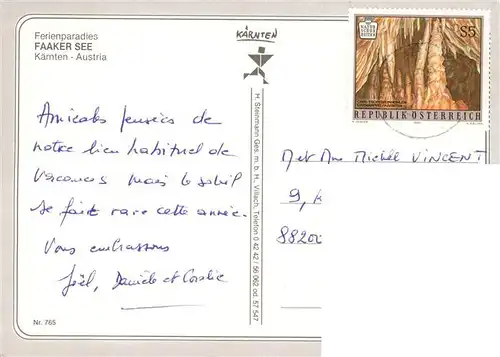 Ferienparadies
FAAKER SEE
Kärnten - Austria
KÄRNTEN
S5
REPUBLIK ÖSTERREICH
Amicales pensées de
notre lieu habituel de
vacances mais le soleil
se fait rare cette année.
Vous embrassons
Joël, Danièle et Coralie
H. Steinmann Ges. m. b. H., Villach, Telefon 0 42 42 / 56 062 od. 57 547
Met Mme Michel VINCENT
9,
8820
Nr. 765